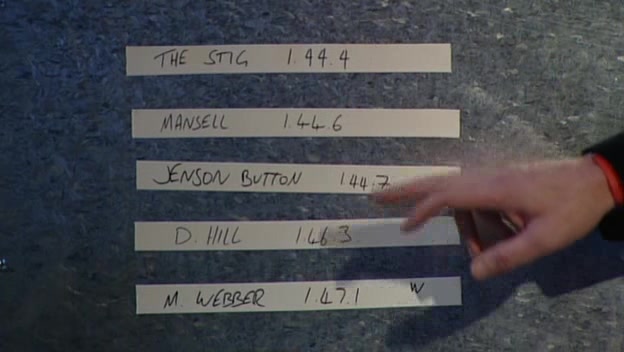 THE STIG 1.44.4
MANSELL 1.44.6
JENSON BUTTON 1.44.7
D. HILL 1.46.3
M. WEBBER 1.47.1 W